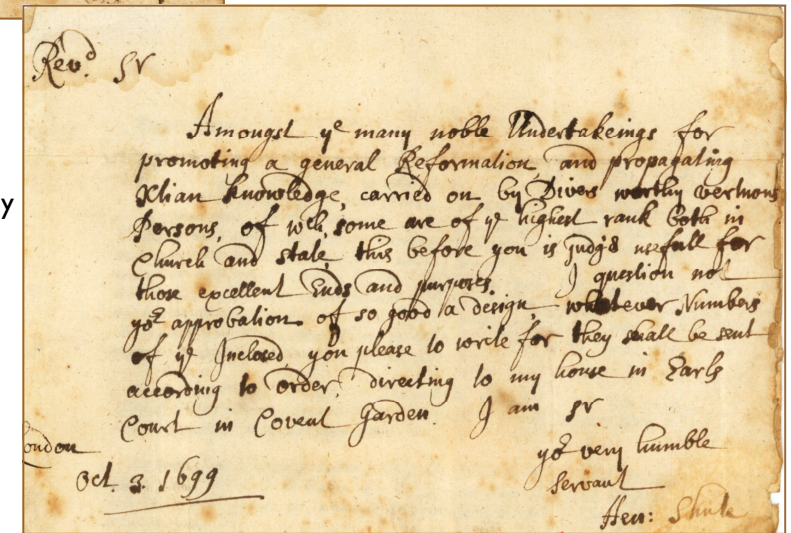 y
Revd Sr
Amongst ye many noble Undertakeings for
promoting a general Reformation, and propagating
Xtian knowledge, carried on by Divers worthy vertuous
Persons, of wch some are of ye highest rank both in
Church and state, this before you is judg'd usefull for
those excellent Ends and purposes. I question not
yor approbation of so good a design, whatever Numbers
of ye Inclosed you please to write for they shall be sent
according to order, directing to my house in Earls
Court in Covent Garden. I am Sr
yor very humble
servant
Hen: Shute
ondon
Oct. 3. 1699